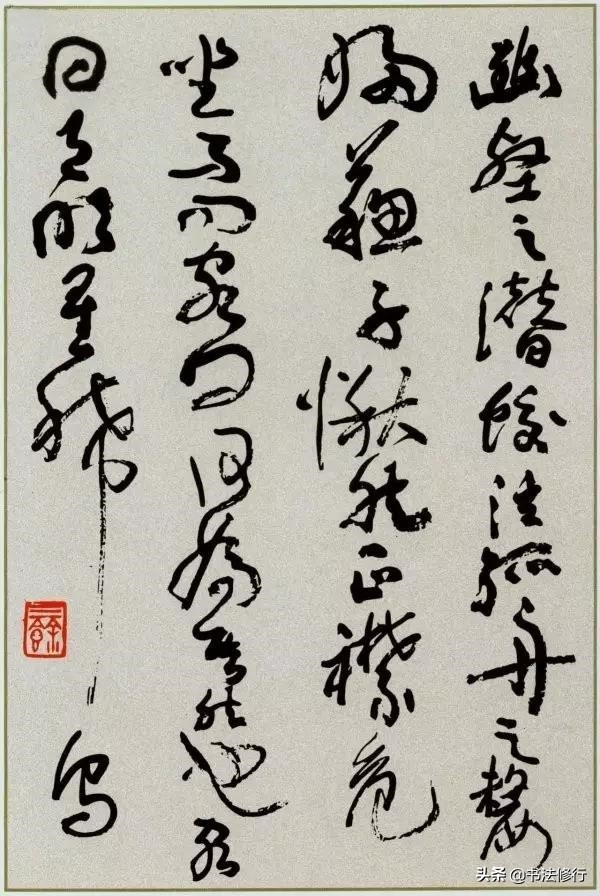 幽壑之潛蛟泣孤舟之嫠
婦蘇子愀然正襟危
坐而問客曰何為其然也客
曰月明星稀烏
头条 @书法修行